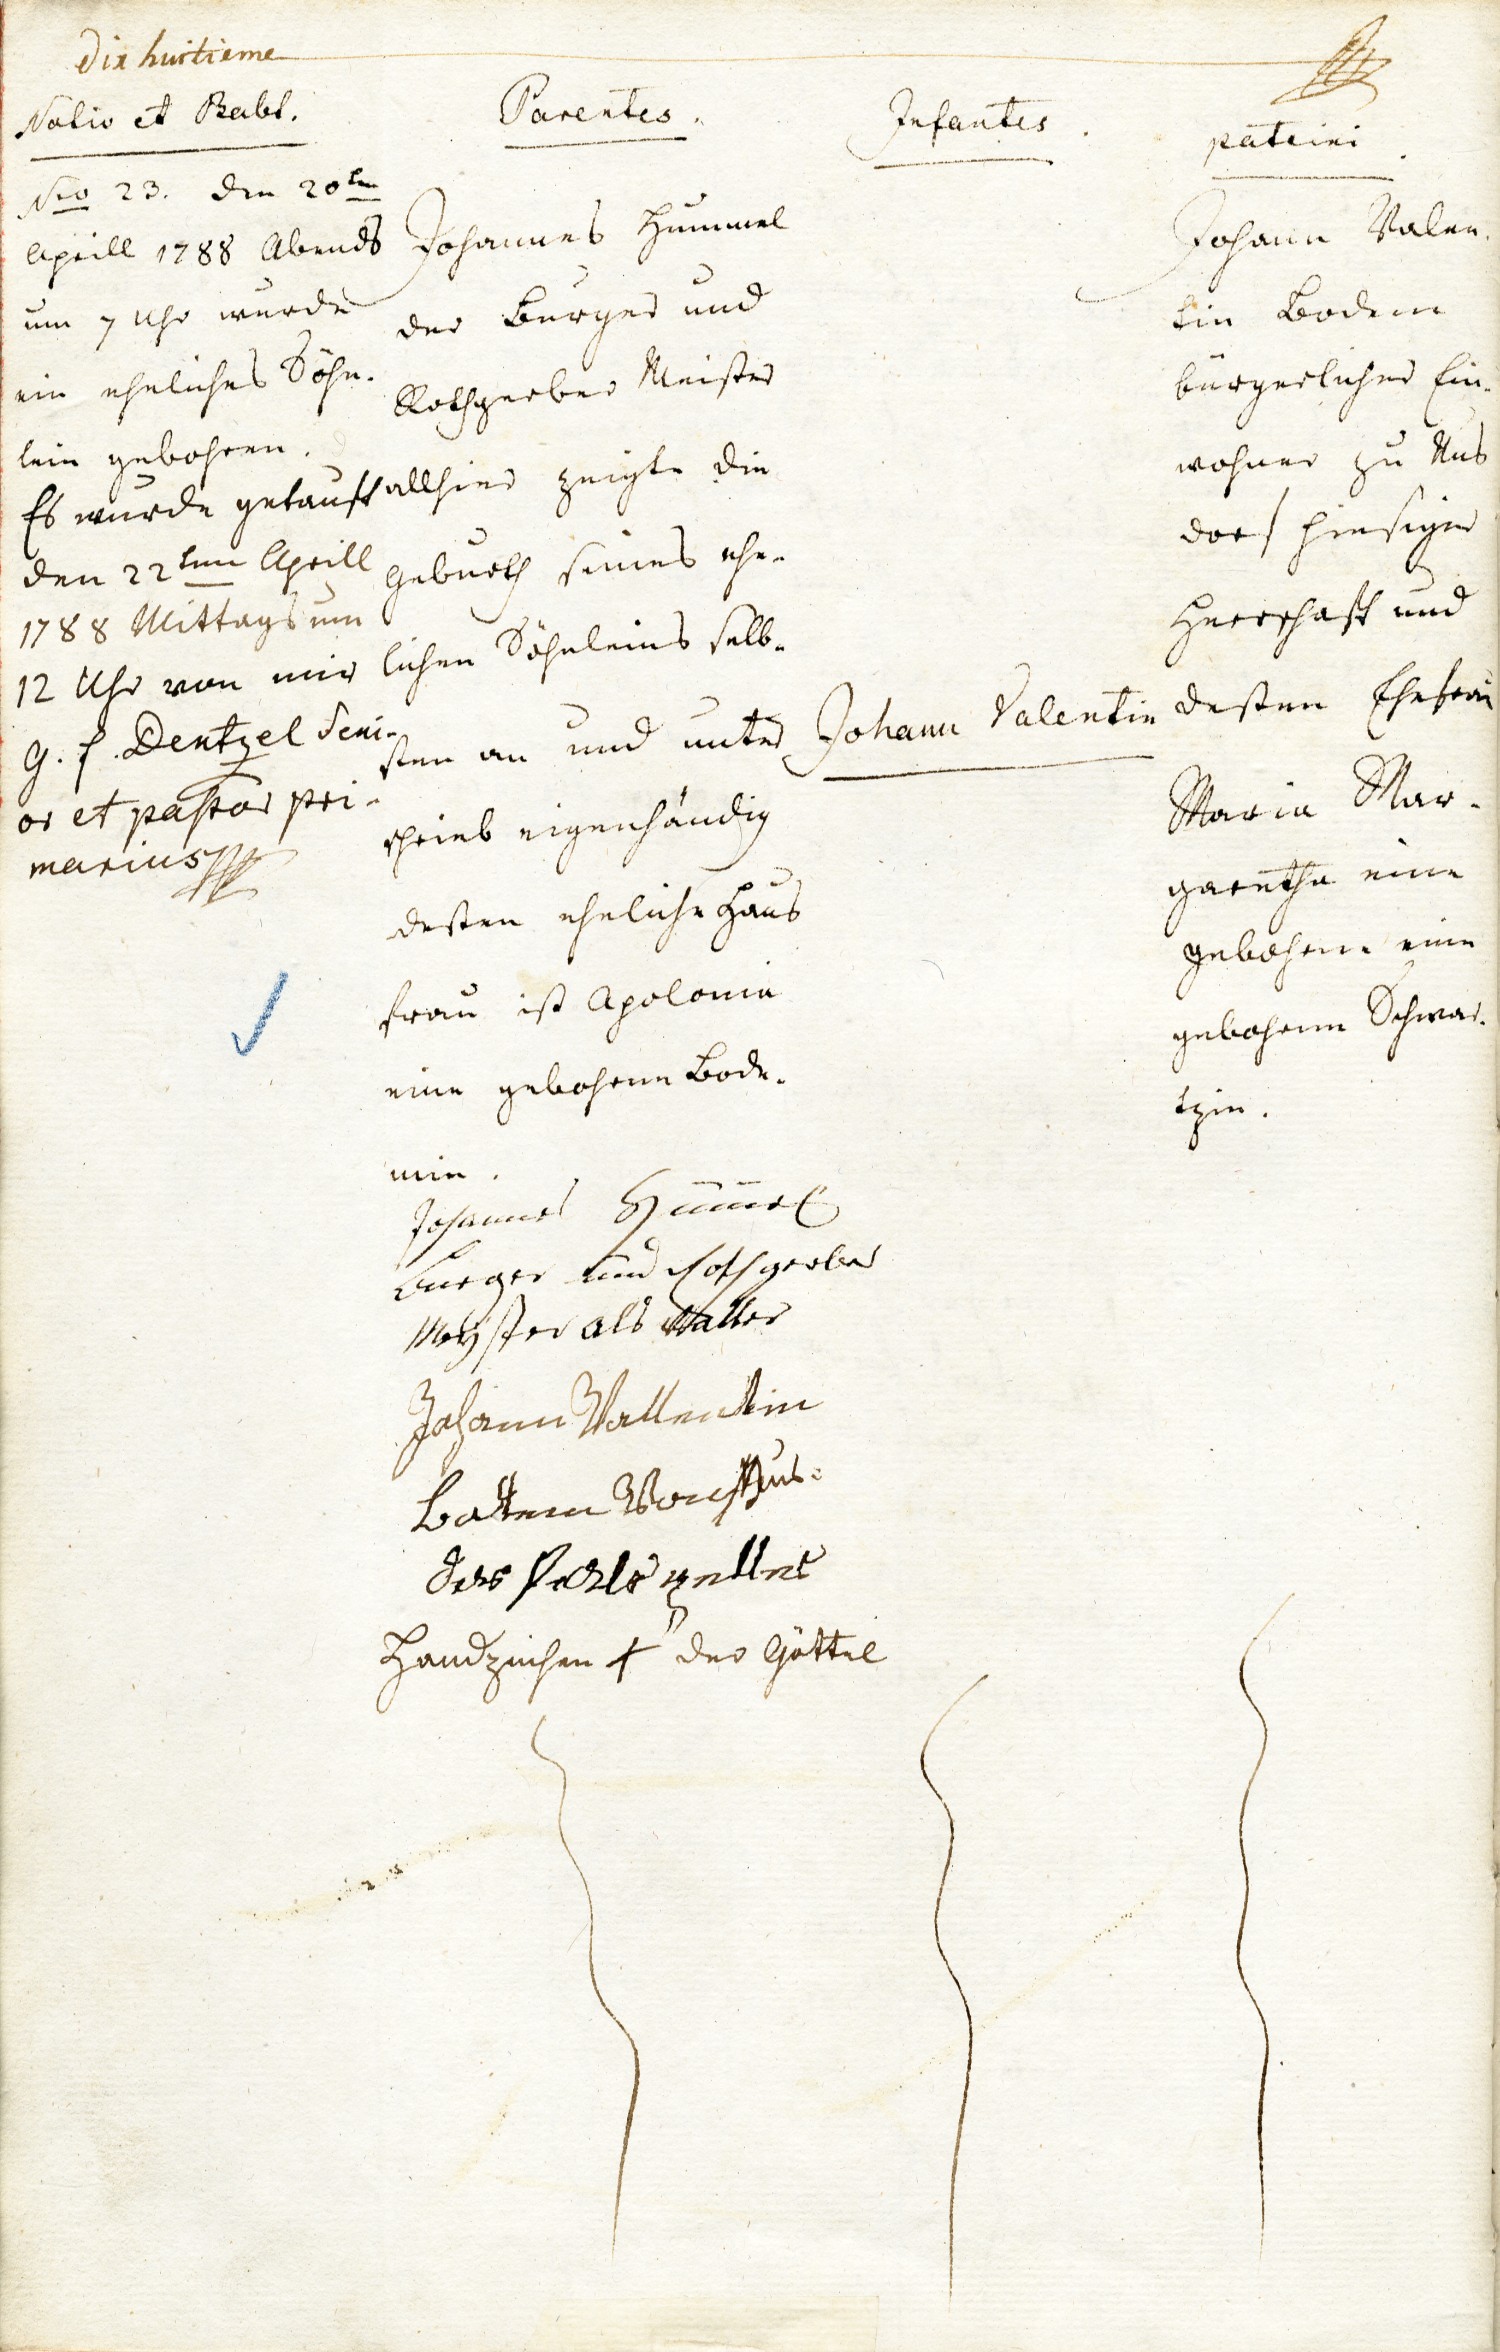 dix huitieme
Natio et Babt.
Nro 23. den 20ten
Aprill 1788 Abends
um 7 Uhr wurde
ein eheliches Söhn-
lein gebohren.
Es wurde getauft
den 22ten Aprill
1788 Mittags um
12 Uhr von mir
G. f. Dentzel Seni-
or et pastor pri-
marius
Parentes.
Johannes Hummel
der Burger und
Rothgerber Meister
allhier zeigte die
Geburth seines ehe-
lichen Söhnleins selb-
sten an und unter
schrieb eigenhändig
dessen eheliche Haus
frau ist Apolonia
eine gebohrene Bode-
min.
Johannes Hummel
burger und rothgerber
Meyster als Vatter
Johann Vallentin
Bottem Von
der
Handzeichen + der Göttel
Infantes.
Johann Valentin
patrini.
Johann Valen-
tin Bodem
bürgerlicher Ein-
wohner zu Nus
dorf hiesiger
Herrschaft und
dessen Ehefrau
Maria Mar-
garetha eine
gebohrene eine
gebohrene Schwar-
tzin.